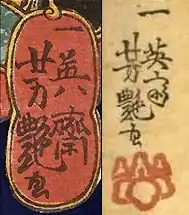 一英齋
芳艷画
一英斎
芳艶画